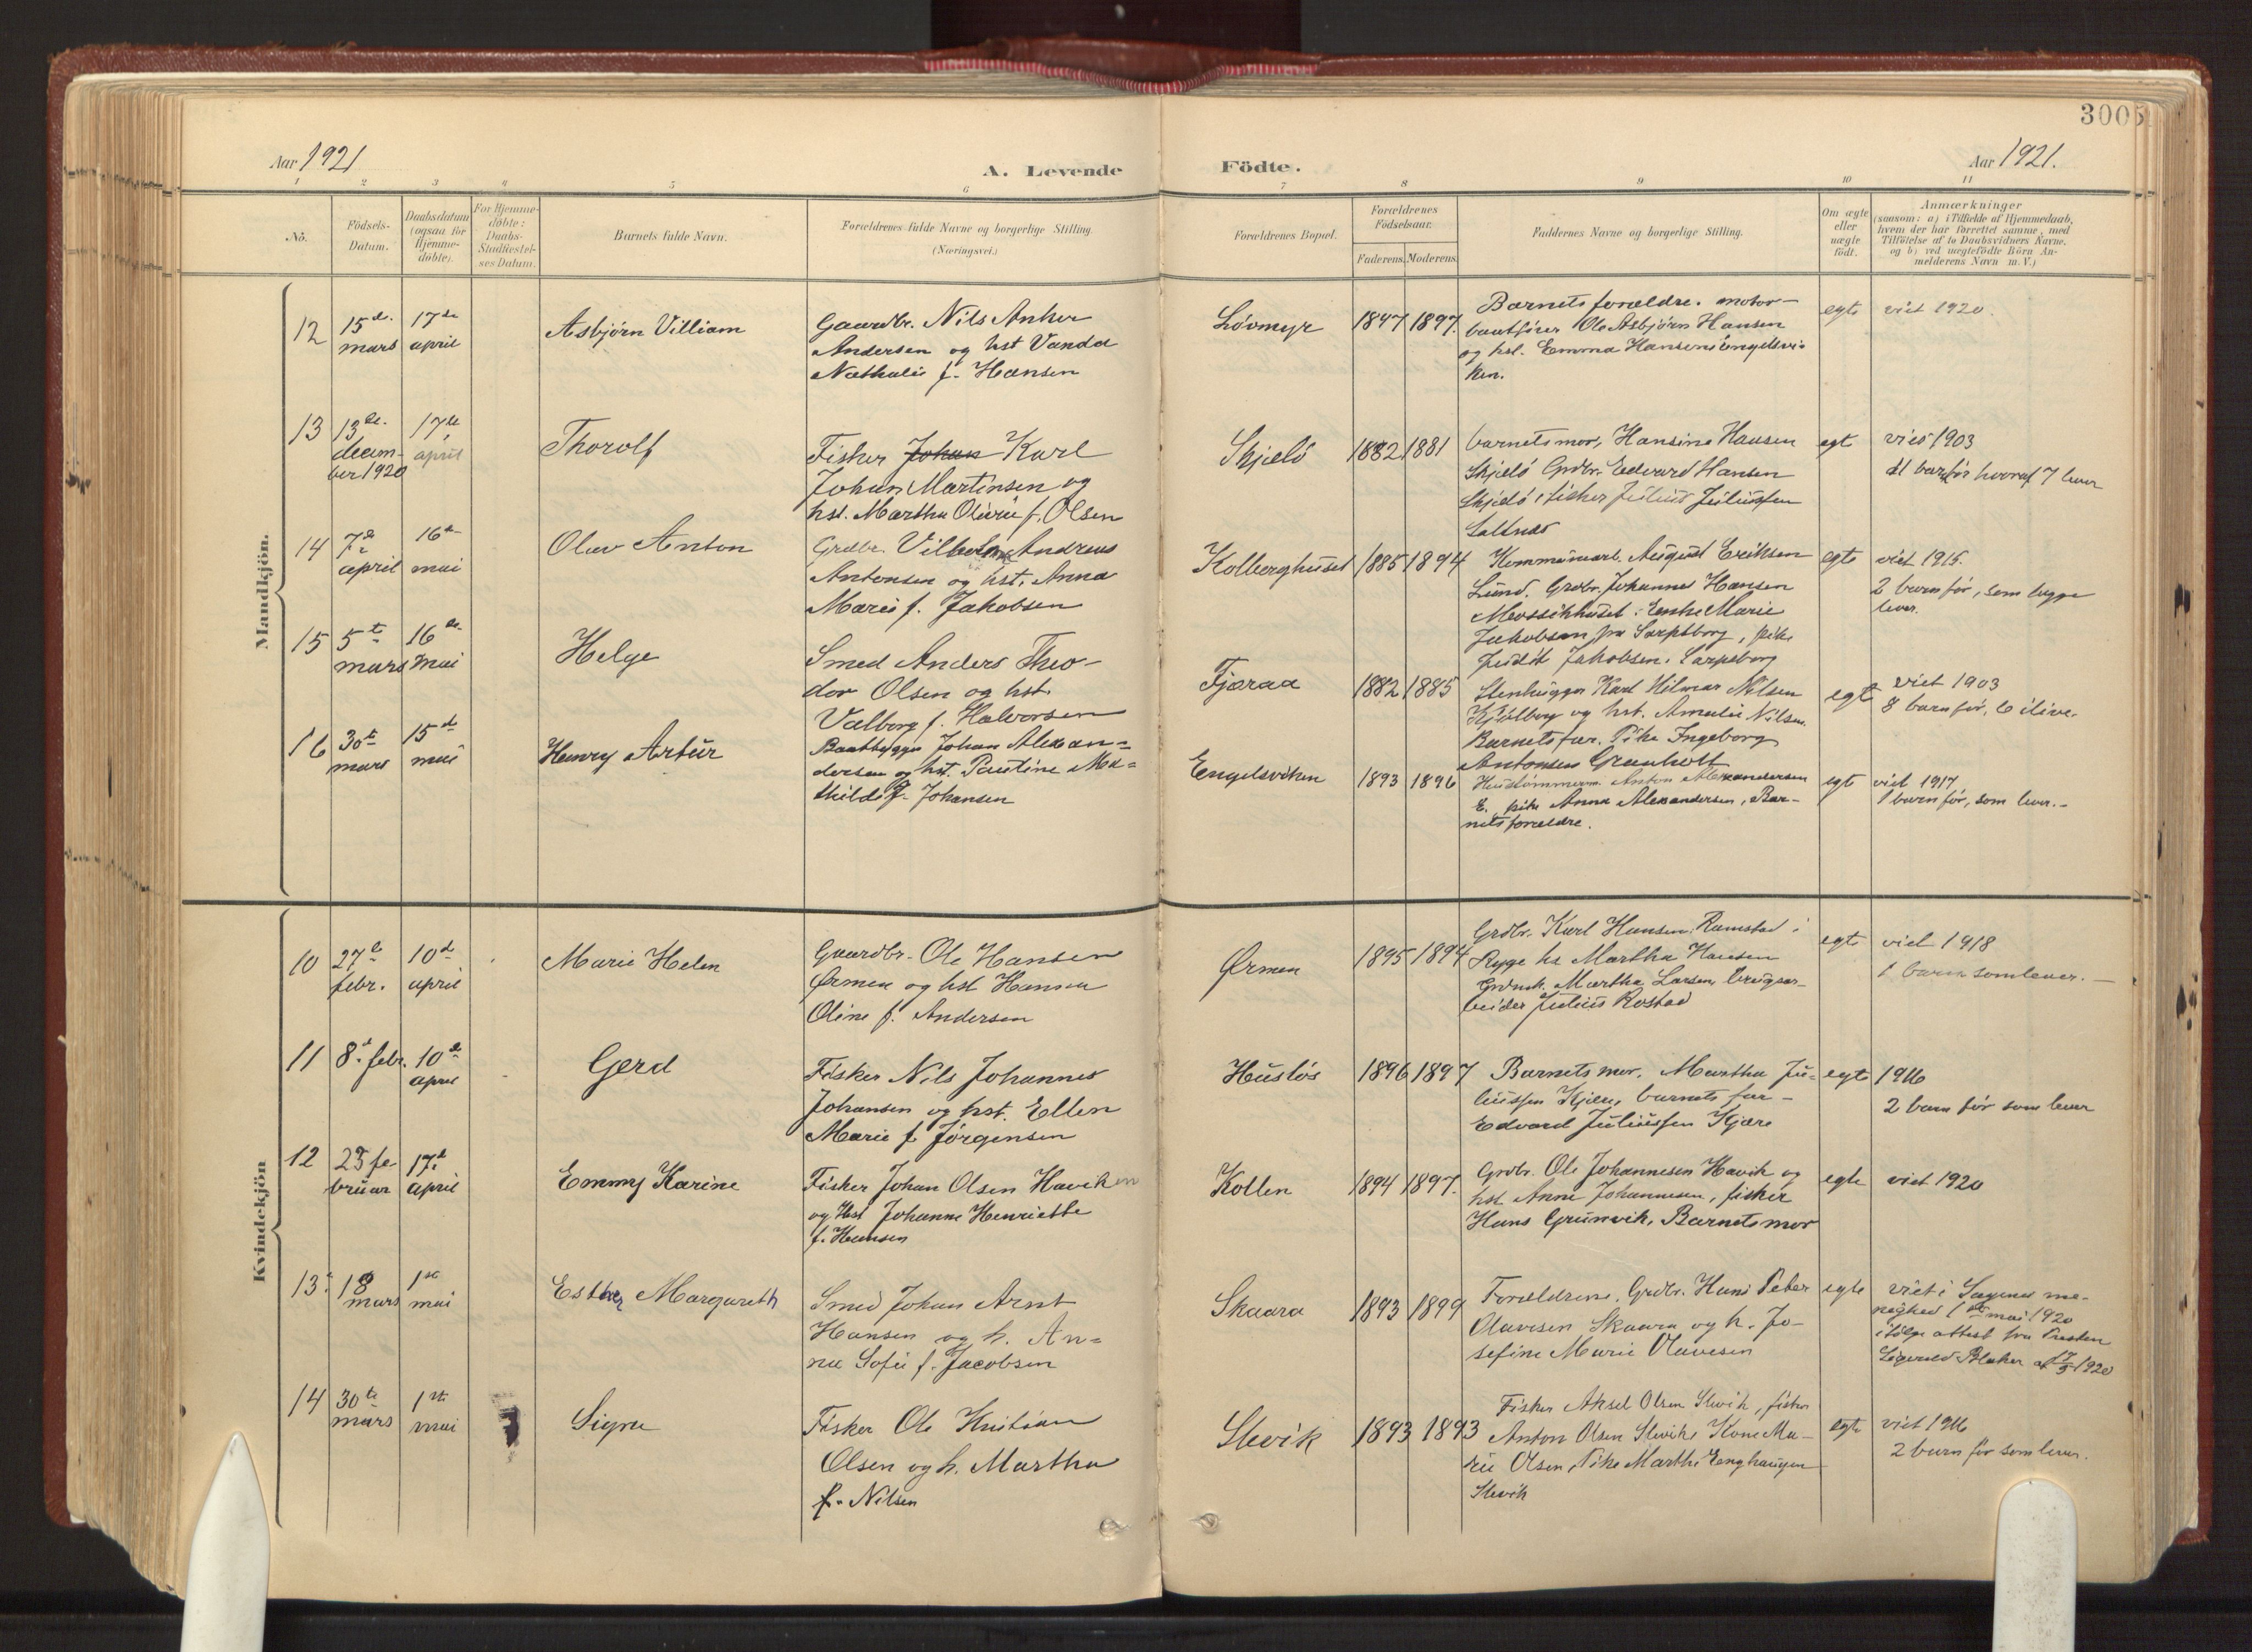 3005
Aar 1921
A. Levende
Födte.
Aar 1921.
1 2 3 4 5 6 7 8 9 10 11
No.
Födsels-
Datum.
Daabsdatum
(ogsaa for
Hjemme-
døbte).
For Hjemme-
døbte:
Daabs-
Stadfæstel-
ses Datum.
Barnets fulde Navn.
Forældrenes fulde Navne og borgerlige Stilling.
(Næringsvei.)
Forældrenes Bopæl.
Forældrenes
Fødselsaar.
Faderens. Moderens.
Faddernes Navne og borgerlige Stilling.
Om ægte
eller
uægte
født.
Anmærkninger
(saasom: a) i Tilfælde af Hjemmedaab,
hvem der har forrettet samme, med
Tilføielse af to Daabsvidners Navne,
og b) ved uegtefödte Börn An-
melderens Navn m. V.)
Mandkjön.
12
15de
mars
17de
april
Asbjørn Villiam
Gaardbr. Nils Anker
Andersen og hst Vanda
Nathalie f. Hansen
Løvmyr
1847 1897.
Barnets forældre. motor-
baatfører Ole Asbjørn Hansen
og hst. Emma Hansen Engelsvi-
ken.
egte
viet 1920.
13
13de
decem-
ber 1920
17de
april
Thorolf
Fisker Johan Karl
Johan Martinsen og
hst. Martha Olivie f. Olsen
Skjelö
1882 1881
barnets mor, Hansine Hansen
Skjelö Grdbr. Edvard Hansen
Skjelö, fisker Julius Juliussen
Saltnes
egt
vies 1903
11 barn før hvoraf 7 lever
14
7de
april
16de
mai
Olav Anton
Grdbr. Vilhelm Andreas
Antonsen og hst. Anna
Marie f. Jakobsen
Kolberghuset
1885 1894
Kommunearb. August Eriksen
Lund, Grdbr. Johannes Hansen
Mossikhuset. Enke Marie
Jakobsen fra Sarpsborg, pike
Judit Jakobsen. Sarpsborg
egte
viet 1915.
2 barn før, som begge
lever.
15
5te
mars
16de
mai
Helge
Smed Anders Theo-
dor Olsen og hst.
Valborg f. Halvorsen
Fjæraa
1882 1885
Stenhugger Karl Hilmar Nilsen
Kjölberg og hst. Amalie Nilsen.
Barnets far. Pike Ingeborg
Antonsen Grønholt
egte
viet 1903
8 barn før, 6 ilive.
16
30te
mars
15de
mai
Henry Artur
Baatbygger Johan Alexan-
dersen og hst. Pauline Ma-
thilde f. Johansen
Engelsviken
1893 1896
Hustømmerm. Anton Alexandersen
E. pike Anna Alexandersen, Bar-
nets forældre.
egte
viet 1917
1 barn før, som lever.
Kvindekjön
10
27de
febr.
10de
april
Marie Helen
Gaardbr. Ole Hansen
Ørmen og hst Hanna
Oline f. Andersen
Ørmen
1895 1894
Grdbr. Karl Hansen, Ramstad i
Rygge hs Martha Hansen
Martha Larsen, brugsar-
beider Julius Rostad
egte
viet 1918
1 barn som lever.
11
8de febr.
10de
april
Gerd
Fisker Nils Johannes
Johansen og hst. Ellen
Marie f. Jörgensen
Huslös
1896 1897
Barnets mor, Martha Ju-
liussen Kjære, barnets far
Edvard Juliussen Kjære
egte
1916
2 barn før som lever
12
25 fe-
bruar
17de
april
Emmy Karine
Fisker Johan Olsen Haviken
og Hst Johanne Henriette
f. Hansen
Kollen
1894 1897.
Grdbr. Ole Johannesen Havik og
hst Anne Johannesen, fisker
Hans Grunvik, Barnets mor
egte
viet 1920
13.
18
mars
1ste
mai
Esther Margareth
Smed Johan Arnt
Hansen og h. An-
na Sofie f. Jacobsen
Skaara
1893 1899
Forældrene, Grdbr. Hans Peter
Olavesen Skaara og h. Jo-
sefine Marie Olavesen
egte
viet i Sagene me-
nighed 1ste mai 1920
ifølge attest fra Presten
Sigurd Blaker af 17/3 1920
14
30te
mars
1ste
mai
Signe
Fisker Ole Kristian
Olsen og h. Martha
f. Nilsen
Slevik
1893 1893
Fisker Aksel Olsen Slevik, fisker
Anton Olsen Slevik, Kone Ma-
rie Olsen, Pike Marthe Enghaugen
Slevik
egte
viet 1916
2 barn før som lever.